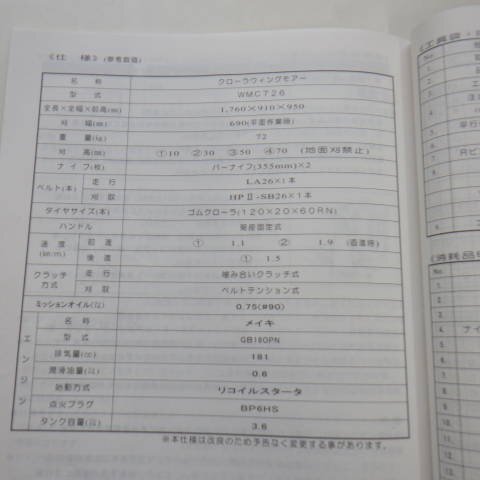 《仕 様》(参考数値)
名 称 クローラウィングモアー
型 式 WMC726
全長×全幅×全高(㎜) 1,760×910×950
刈 幅(㎜) 690(平面作業時)
重 量(㎏) 72
刈 高(㎜) ①10 ②30 ③50 ④70 (地面刈禁止)
ナ イ フ(枚) バーナイフ(355mm)×2
ベルト(本) 走 行 LA26×1本
刈 取 HPⅡ-SB26×1本
タイヤサイズ(本) ゴムクローラ(120×20×60RN)
ハンドル 架座固定式
速 度(㎞/h) 前 進 ① 1.1 ② 1.9 (直進時)
後 進 ① 1.5
クラッチ方式 走 行 噛み合いクラッチ式
刈 取 ベルトテンション式
ミッションオイル(㍑) 0.75(#90)
エンジン
名 称 メイキ
型 式 GB180PN
排気量(cc) 181
潤滑油量(㍑) 0.6
始動方式 リコイルスタータ
点火プラグ BP6HS
タンク容量(㍑) 3.6
※本仕様は改良のため予告なく変更する事があります。
《工具袋・
No.
1.
2.
3.
4.
《消耗品
No.
1.
2.
3.
4. ナイ
5.
6.
7.
8.
9.
10.
11.
12.
13.